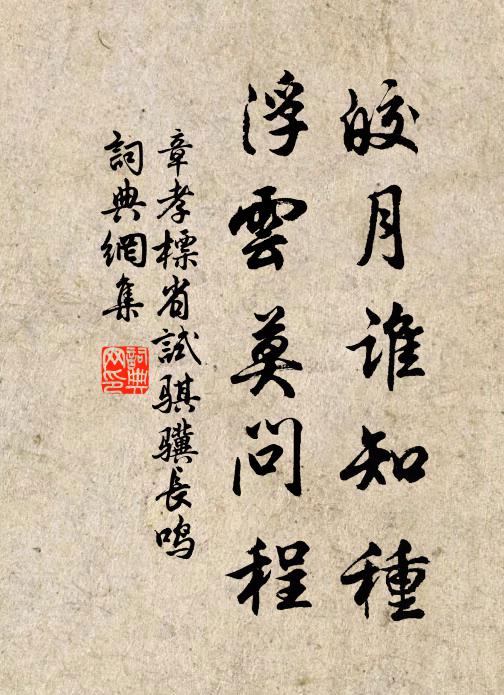 皎月誰知種
浮雲莫問程
章孝標省試騏驥長鳴
詞典網集
詞典網印